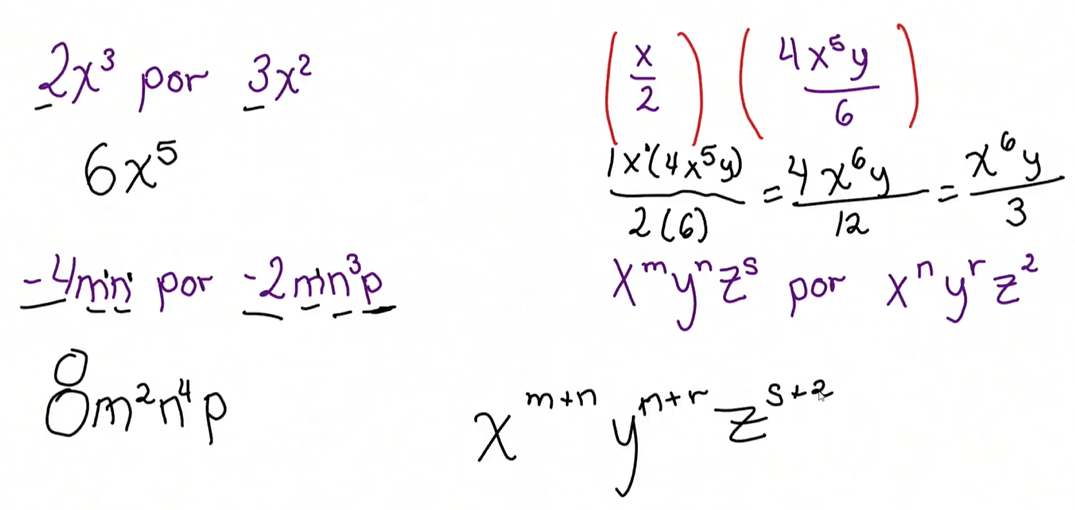 2x³ por 3x²
6x⁵
-4m¹n¹ por -2m¹n³p
8m²n⁴p
(x/2) (4x⁵y/6)
1x¹(4x⁵y)/2(6) = 4x⁶y/12 = x⁶y/3
xᵐyⁿzˢ por xⁿyʳz²
xᵐ⁺ⁿ yⁿ⁺ʳ zˢ⁺²